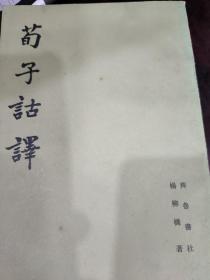 荀子詁譯
齊魯書社
楊柳橋 著